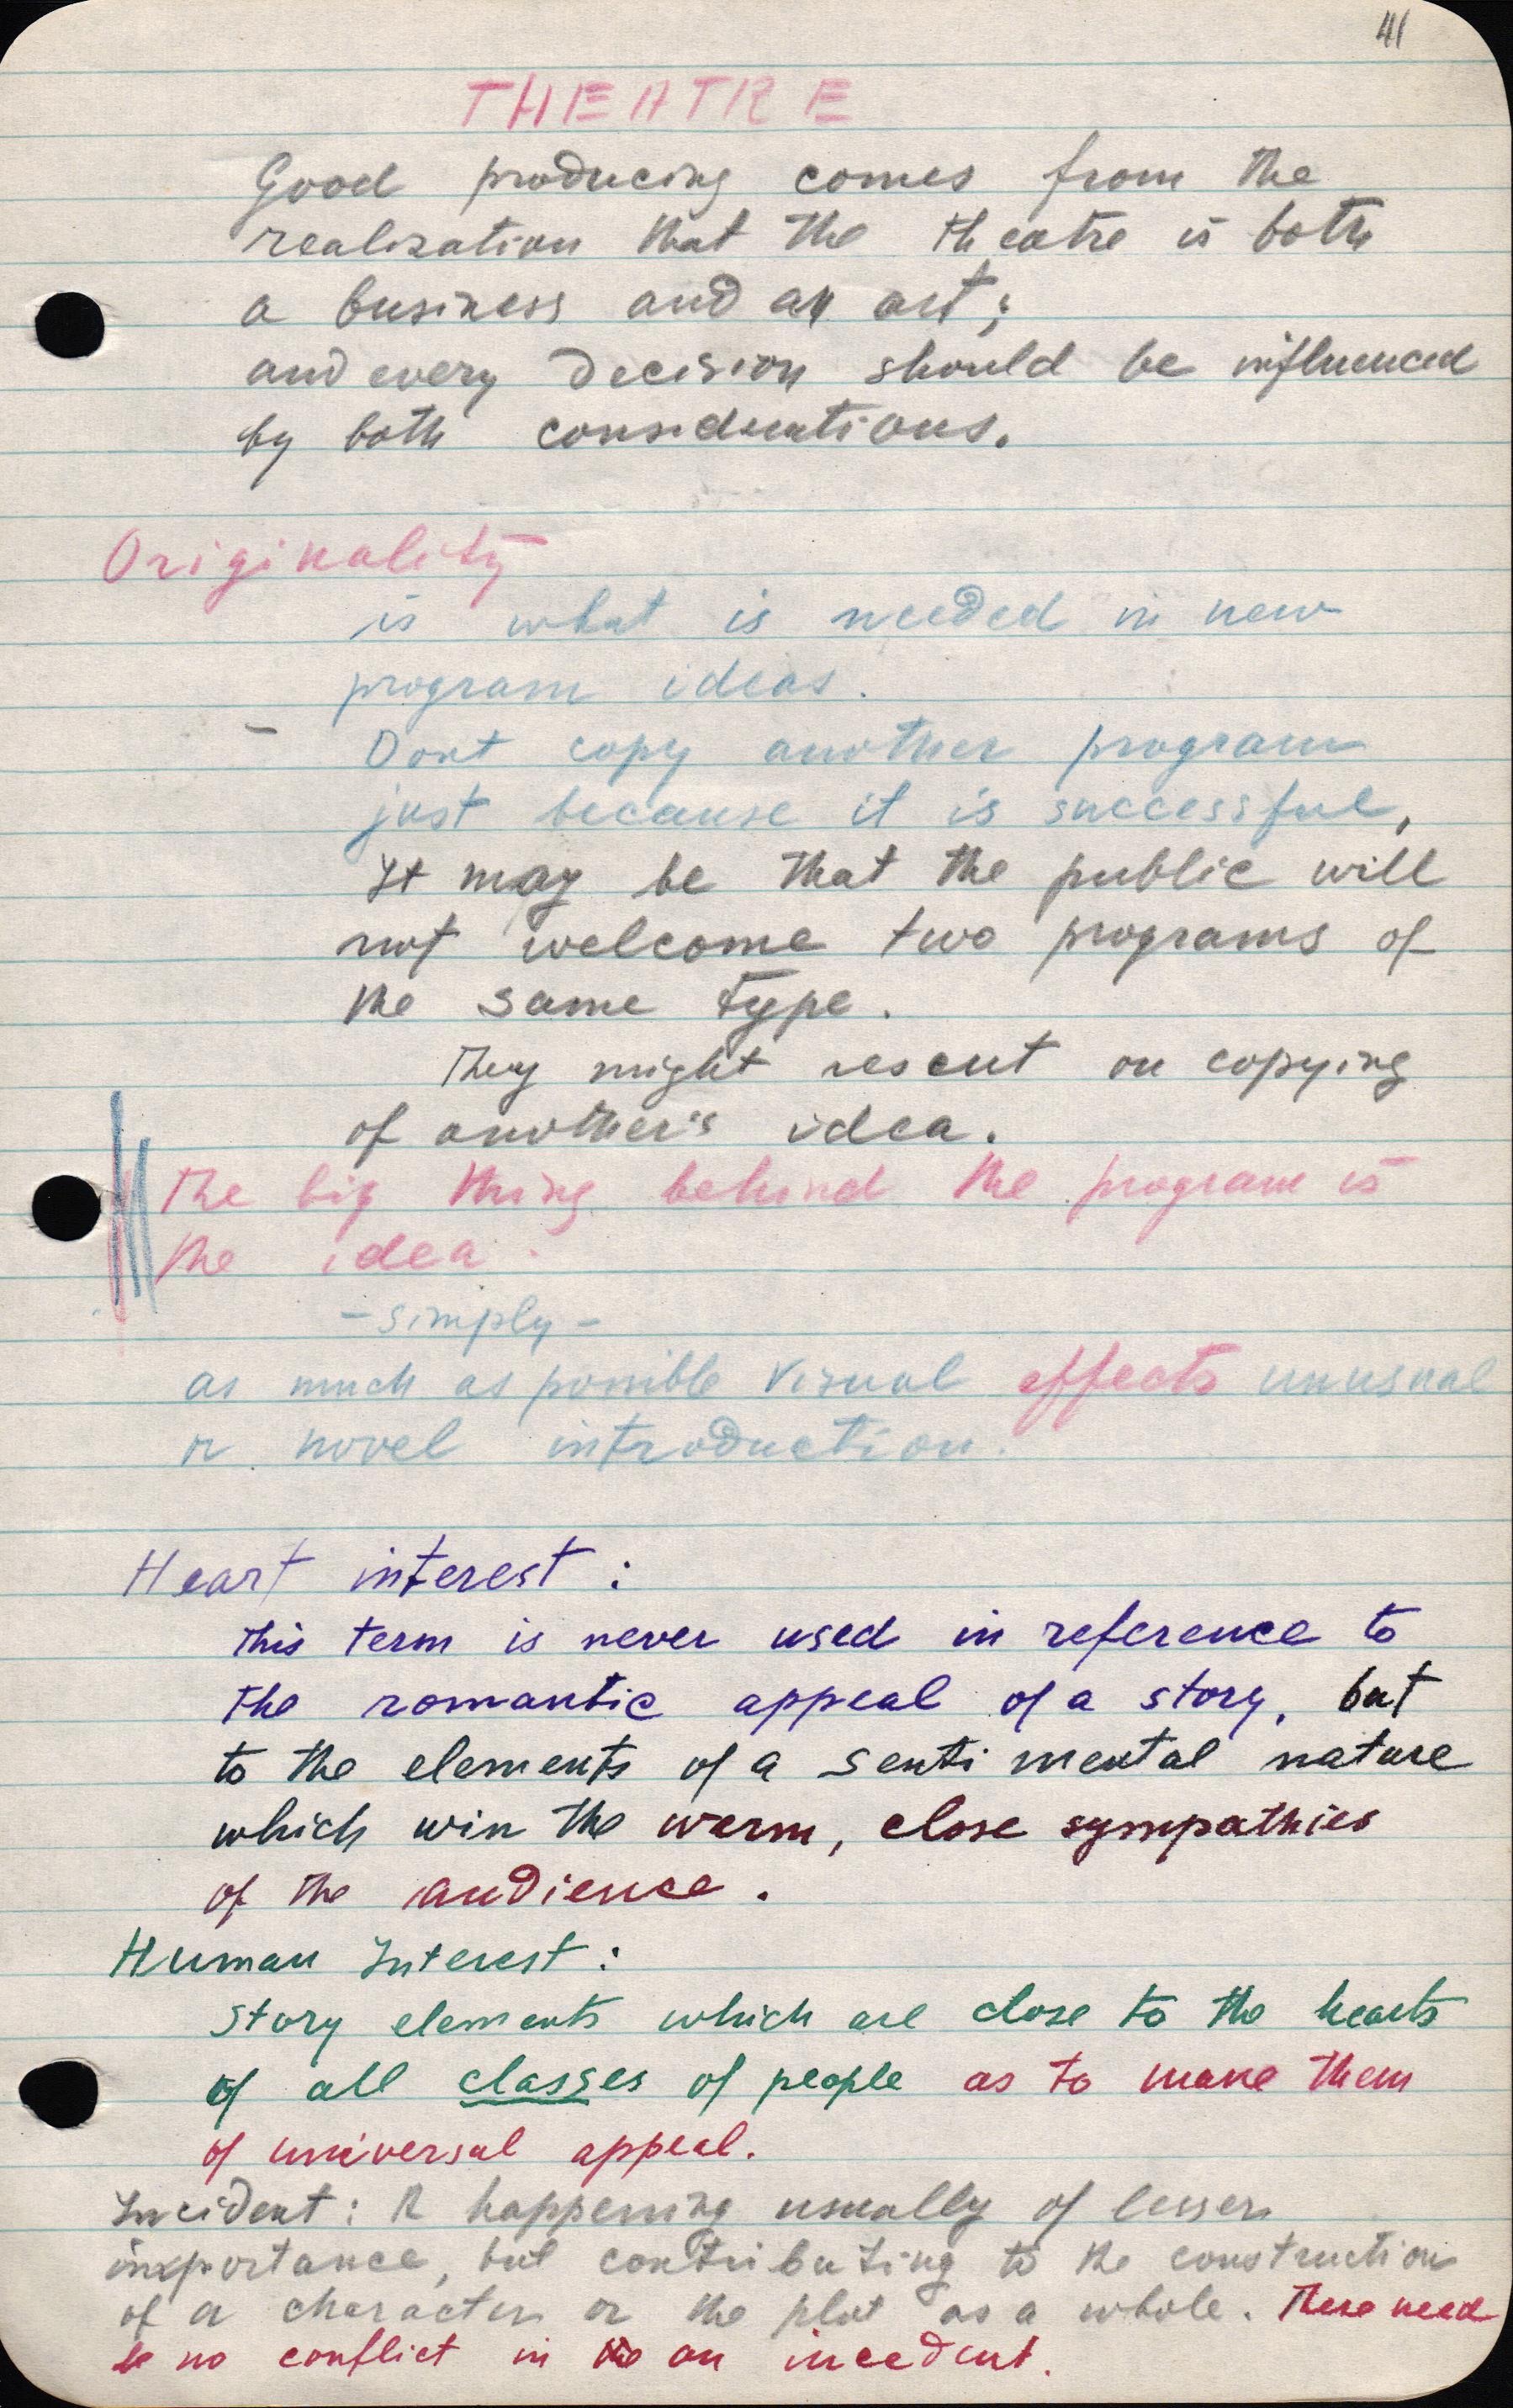 41
THEATRE
Good producing comes from the
realization that the theatre is both
a business and an art;
and every decision should be influenced
by both considerations.
Originality
is what is needed in new
program ideas.
- Dont copy another program
just because it is successful,
It may be that the public will
not welcome two programs of
the same type.
They might resent on copying
of another's idea.
The big thing behind the program is
the idea.
- simply -
as much as possible visual effects unusual
or novel introduction.
Heart interest :
This term is never used in reference to
the romantic appeal of a story, but
to the elements of a sentimental nature
which win the warm, close sympathies
of the audience.
Human Interest :
Story elements which are close to the hearts
of all classes of people as to make them
of universal appeal.
Incident : A happening usually of lesser
importance, but contributing to the construction
of a character or the plot as a whole. There need
be no conflict in an incedent.